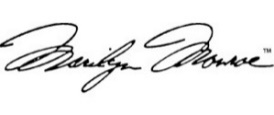 Marilyn Monroe™